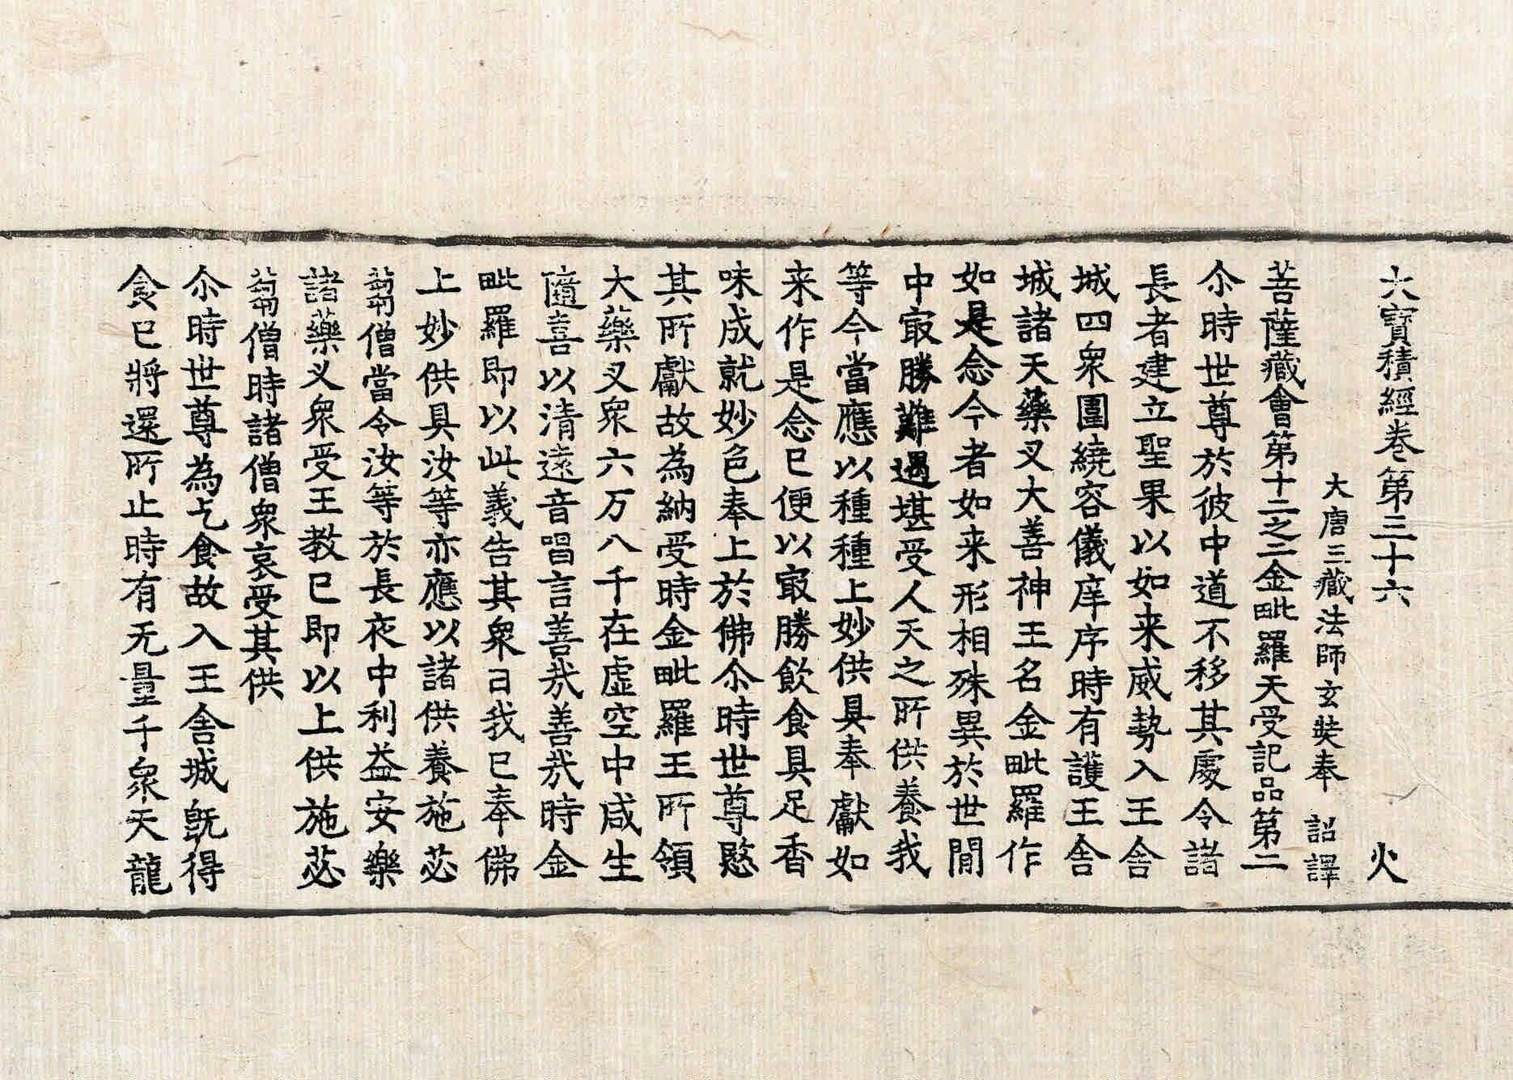 大寶積經卷第三十六 火
大唐三藏法師玄奘奉 詔譯
菩薩藏會第十二之二金毗羅天受記品第二
尒時世尊於彼中道不移其處令諸
長者建立聖果以如来威勢入王舍
城四衆圍繞容儀庠序時有護王舍
城諸天藥叉大善神王名金毗羅作
如是念今者如来形相殊異於世間
中㝡勝難遇堪受人天之所供養我
等今當應以種種上妙供具奉獻如
来作是念已便以㝡勝飲食具足香
味成就妙色奉上於佛尒時世尊愍
其所獻故為納受時金毗羅王所領
大藥叉衆六万八千在虛空中咸生
隨喜以清遠音唱言善㢤善㢤時金
毗羅即以此義告其衆曰我已奉佛
上妙供具汝等亦應以諸供養施苾
蒭僧當令汝等於長夜中利益安樂
諸藥叉衆受王教已即以上供施苾
蒭僧時諸僧衆哀受其供
尒時世尊為乞食故入王舍城旣得
食已將還所止時有无量千衆天龍